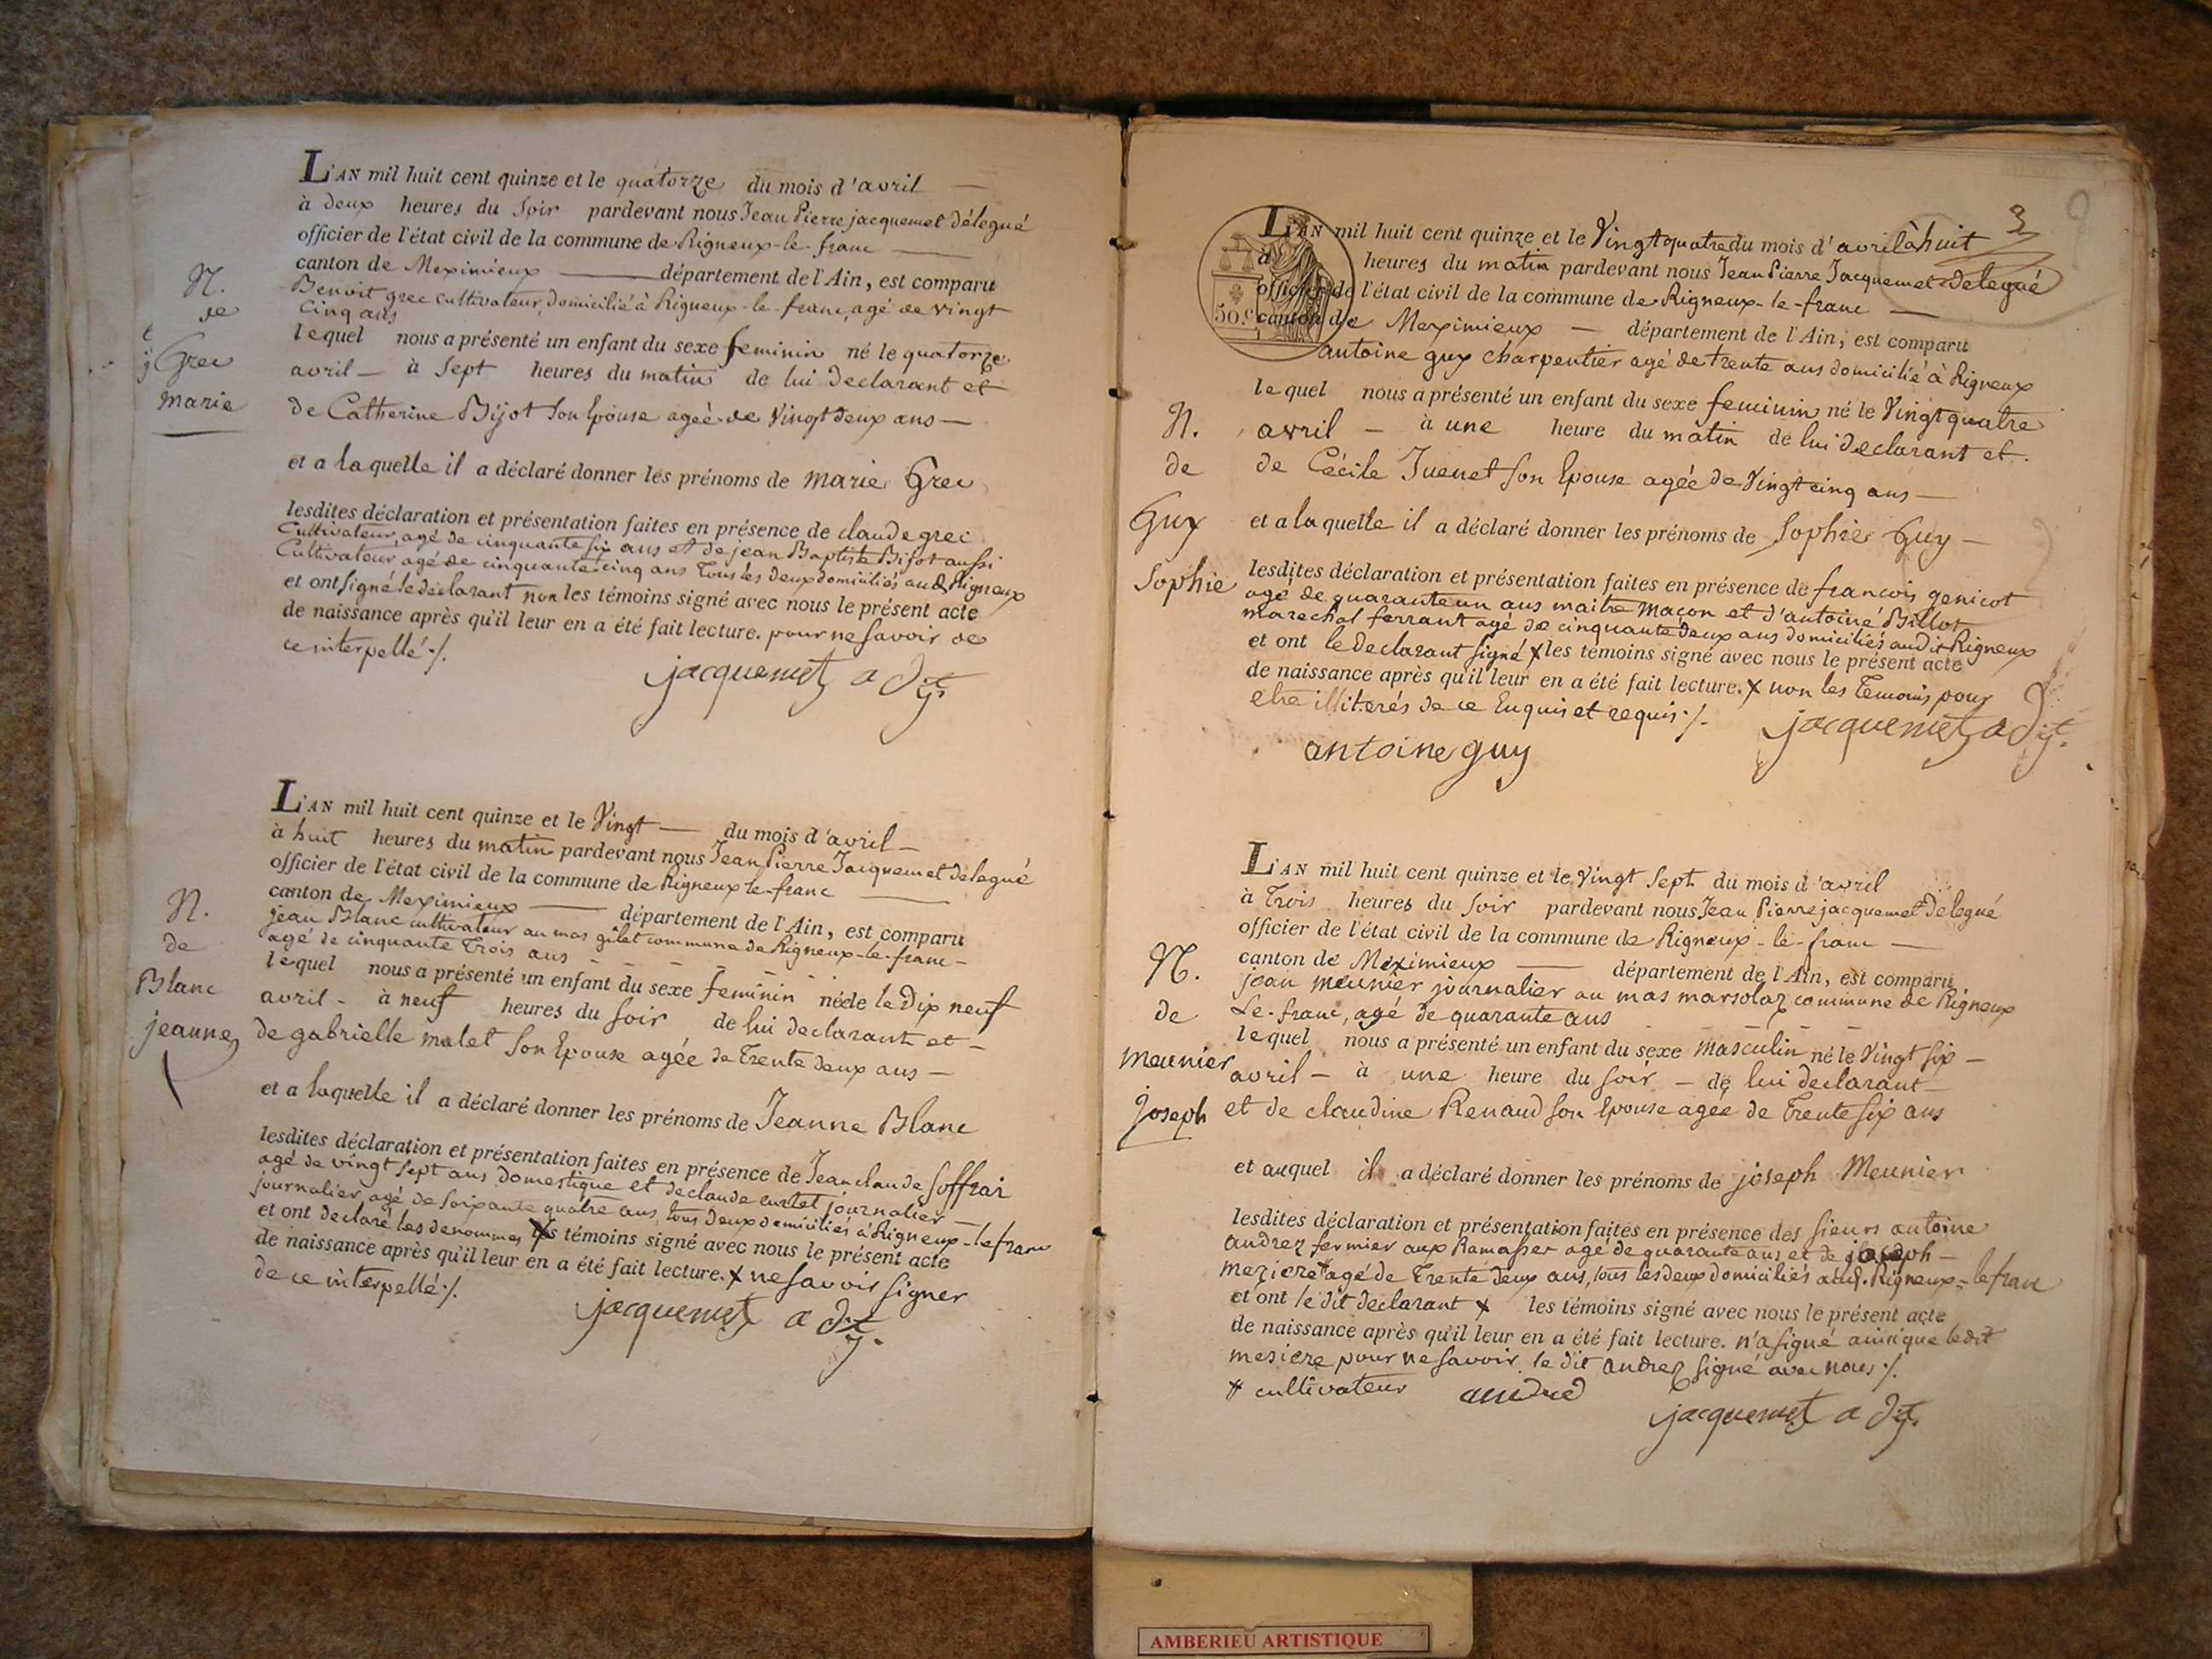 L'AN mil huit cent quinze et le quatorze du mois d'avril —
à deux heures du Soir pardevant nous Jean Pierre jacquemet délegué
officier de l'état civil de la commune de Rigneux-le-franc —
canton de Meximieux — département de l'Ain, est comparu
Benoit grec cultivateur, domicilié à Rigneux-le-franc, agé de vingt
cinq ans
lequel nous a présenté un enfant du sexe feminin né le quatorze
avril — à Sept heures du matin de lui declarant et
de Catherine Bijot Son Epouse agée de Vingt deux ans —
et a laquelle il a déclaré donner les prénoms de Marie Grec
lesdites déclaration et présentation faites en présence de claude grec
Cultivateur, agé de cinquante six ans et de jean Baptiste Bijot aussi
Cultivateur agé de cinquante cinq ans Tous les deux domiciliés aud. Rigneux
et ont signé le declarant non les témoins signé avec nous le présent acte
de naissance après qu'il leur en a été fait lecture. pour ne Savoir de
ce interpellé ./.
jacquemet adjt.
N.
de
Grec
Marie
L'AN mil huit cent quinze et le Vingt — du mois d'avril —
à huit heures du matin pardevant nous Jean Pierre Jacquemet délegué
officier de l'état civil de la commune de Rigneux le-franc —
canton de Meximieux — département de l'Ain, est comparu
jean Blanc cultivateur au mas gilet commune de Rigneux-le-franc —
agé de cinquante Trois ans
lequel nous a présenté un enfant du sexe feminin née le Dix neuf
avril - à neuf heures du Soir de lui declarant et —
de gabrielle malet Son Epouse agée de Trente deux ans —
et a laquelle il a déclaré donner les prénoms de Jeanne Blanc
lesdites déclaration et présentation faites en présence de Jean claude Soffrai
agé de vingt Sept ans domestique et de claude curtet journalier —
journalier, agé de Soixante quatre ans, tous Deux domiciliés à Rigneux-le franc
et ont declaré les denommés X les témoins signé avec nous le présent acte
de naissance après qu'il leur en a été fait lecture. X ne Savoir Signer
de ce interpellé ./.
jacquemet adjt.
N.
de
Blanc
jeanne
3
50.c
L'AN mil huit cent quinze et le Vingt quatre du mois d'avril à huit
à heures du matin pardevant nous Jean Pierre Jacquemet délegué
officier de l'état civil de la commune de Rigneux-le-franc —
canton de Meximieux — département de l'Ain, est comparu
antoine guy charpentier agé de trente ans domicilié à Rigneux
lequel nous a présenté un enfant du sexe feminin né le Vingt quatre
avril — à une heure du matin de lui declarant et
de Cécile Juenet Son Epouse agée de Vingt cinq ans —
et a laquelle il a déclaré donner les prénoms de Sophie Guy —
lesdites déclaration et présentation faites en présence de francois genicot
agé de quarante un ans maitre maçon et d'antoine Billot
marechal ferrant agé de cinquante deux ans domiciliés audit Rigneux
et ont le declarant Signé X les témoins signé avec nous le présent acte
de naissance après qu'il leur en a été fait lecture. X non les Temoins pour
etre illiterés de ce Enquis et requis ./.
jacquemet adjt.
antoine guy
N.
de
Guy
Sophie
L'AN mil huit cent quinze et le Vingt Sept du mois d'avril
à Trois heures du Soir pardevant nous Jean Pierre jacquemet Délegué
officier de l'état civil de la commune de Rigneux-le-franc —
canton de Meximieux — département de l'Ain, est comparu
jean meunier journalier au mas marsolaz commune de Rigneux
Le-franc, agé de quarante ans
lequel nous a présenté un enfant du sexe masculin né le Vingt Six —
avril — à une heure du Soir — de lui declarant —
et de claudine Renaud Son Epouse agée de Trente Six ans
et auquel il a déclaré donner les prénoms de joseph Meunier
lesdites déclaration et présentation faites en présence des Sieurs antoine
andrez fermier aux Ramasser agé de quarante ans et de joseph —
meziere X agé de Trente Deux ans, tous les deux domiciliés aud. Rigneux-le franc
et ont le dit declarant X les témoins signé avec nous le présent acte
de naissance après qu'il leur en a été fait lecture. n'a Signé ainsi que le dit
mesiere pour ne Savoir le dit andrez Signé avec nous ./.
X cultivateur
andred
jacquemet adjt.
N.
de
Meunier
Joseph
AMBERIEU ARTISTIQUE